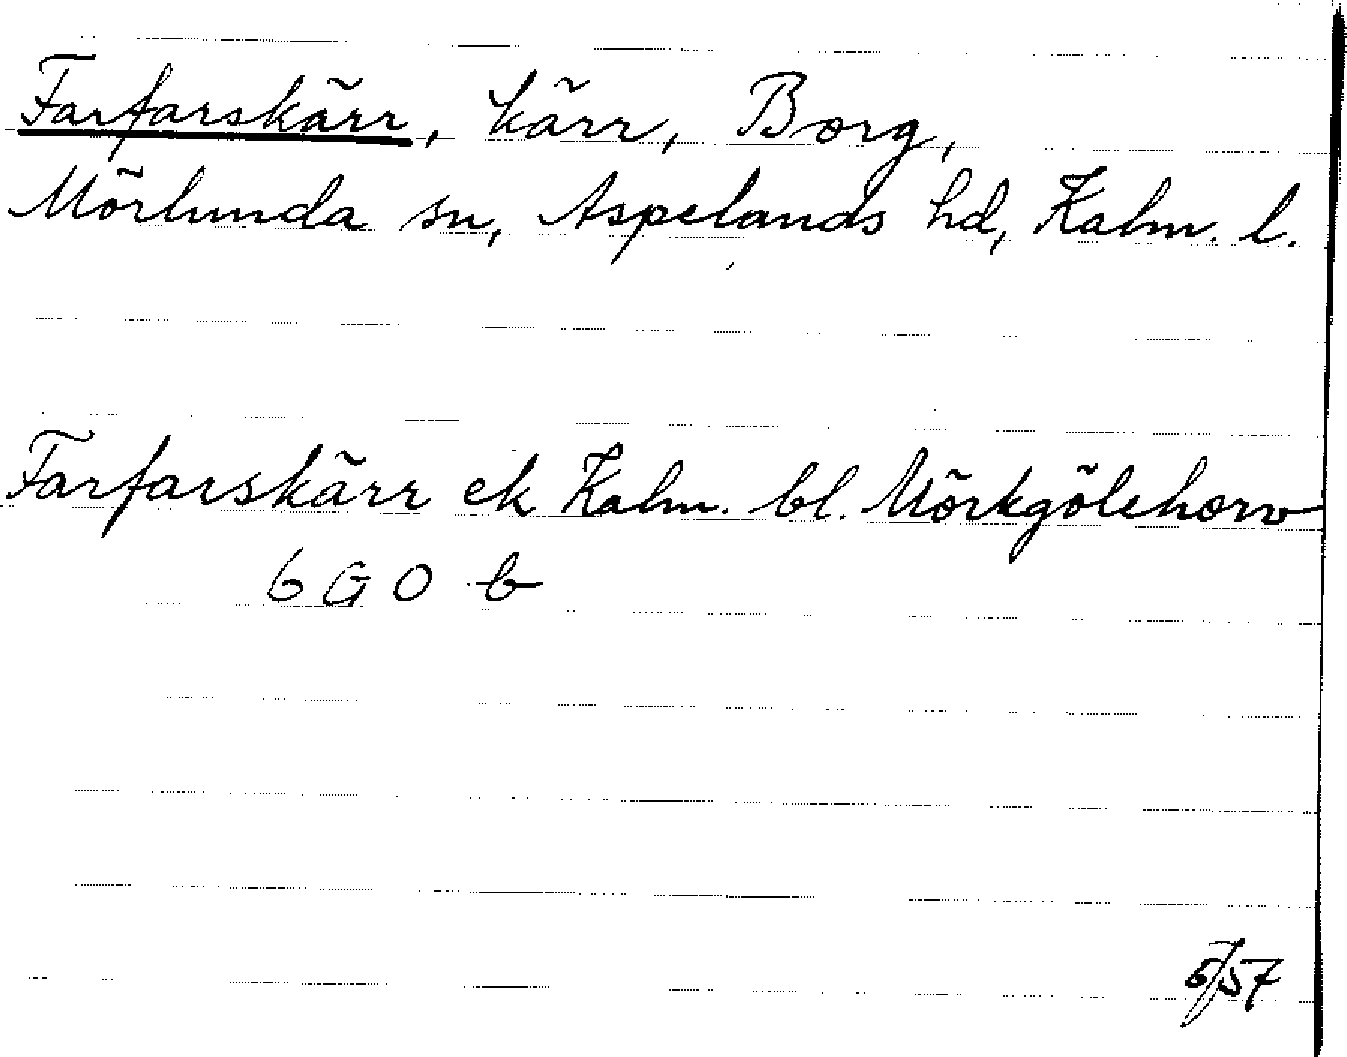 Farfarskärr, kärr, Borg,
Mörlunda sn, Aspelands hd, Kalm. l.
Farfarskärr ek Kalm. bl. Mörkgölehorv
6 G O b
5/57